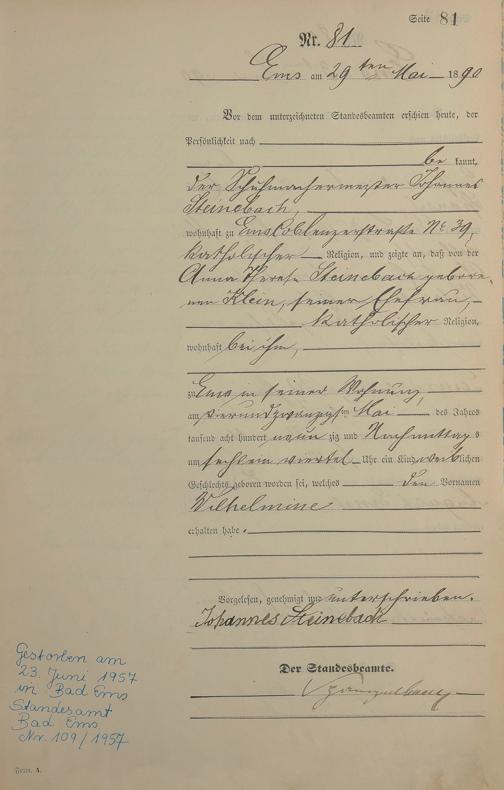 Seite 81
Nr. 81
Ems am 29ten Mai 1890
Vor dem unterzeichneten Standesbeamten erschien heute, der
Persönlichkeit nach
be kannt,
der Schuhmachermeister Johannes
Steinebach,
wohnhaft zu Ems Coblenzerstraße No 39,
katholischer Religion, und zeigte an, daß von der
Anna Therese Steinebach gebore-
nen Klein, seiner Ehefrau,
katholischer Religion,
wohnhaft bei ihm,
zu Ems in seiner Wohnung
am vierundzwanzigsten Mai des Jahres
tausend acht hundert neun zig und Nachmittag s
um viertel Uhr ein Kind weiblichen
Geschlechts geboren worden sei, welches den Vornamen
Wilhelmine
erhalten habe.
Vorgelesen, genehmigt und unterschrieben.
Johannes Steinebach
Der Standesbeamte.
Gestorben am
23. Juni 1957
in Bad Ems
Standesamt
Bad Ems
Nr. 109/1957
Form. A.